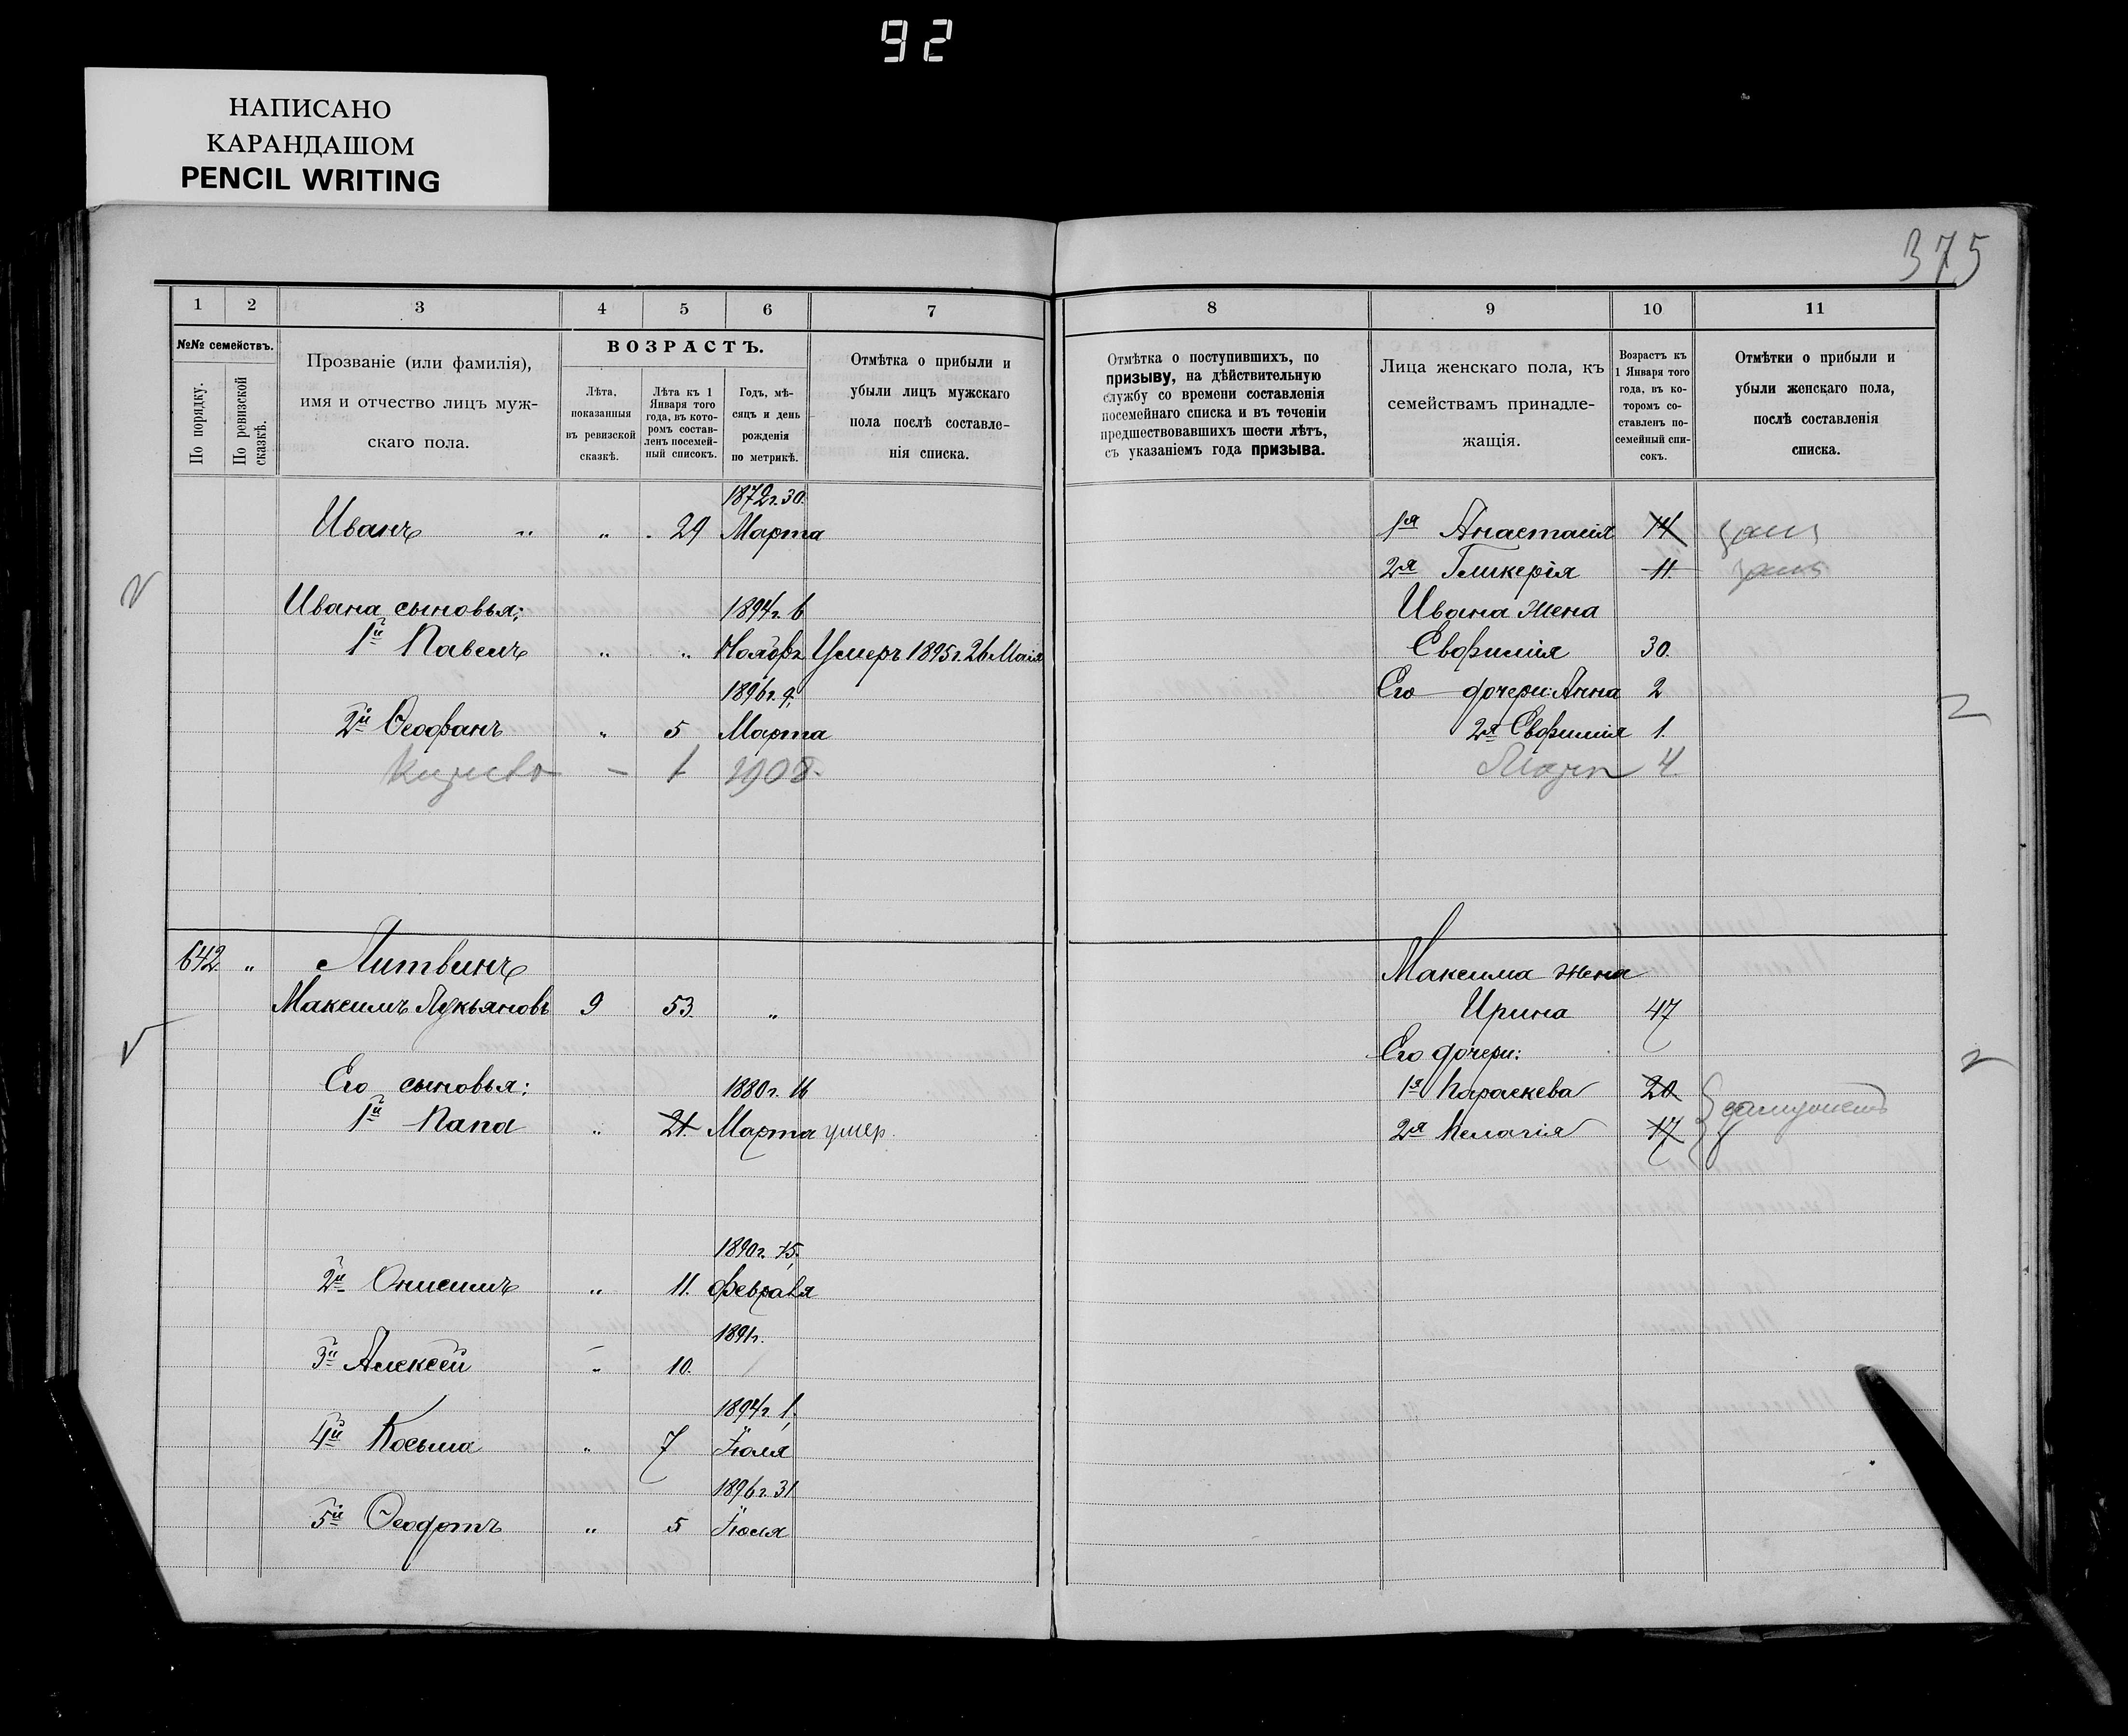 92
НАПИСАНО
КАРАНДАШОМ
PENCIL WRITING
375
1 2 3 4 5 6 7
№№ семействъ.
По порядку.
По ревизской сказкѣ.
Прозваніе (или фамилія),
имя и отчество лицъ муж-
скаго пола.
ВОЗРАСТЪ.
Лѣта,
показанныя
въ ревизской
сказкѣ.
Лѣта къ 1
Января того
года, въ кото-
ромъ состав-
ленъ посемей-
ный списокъ.
Годъ, мѣ-
сяцъ и день
рожденія
по метрикѣ.
Отмѣтка о прибыли и
убыли лицъ мужскаго
пола послѣ составле-
нія списка.
1872 г. 30.
Иванъ " " 29 Марта
Ивана сыновья: 1894 г. 6
1й Павелъ " " Ноября Умеръ 1895 г. 26 Маія
1896 г. 9.
2й Ѳеофанъ " 5 Марта
- 1 1908.
642. " Литвинъ
Максимъ Лукьяновъ 9 53. "
Его сыновья: 1880 г. 16
1й Папа " 21. Марта умер.
1890 г. 15.
2й Онисимъ " 11. Февраля
1891 г.
3й Алексѣй " 10.
1894 г. 1.
4й Косьма " 7 Іюля
1896 г. 31
5й Ѳеодотъ " 5 Іюля
8 9 10 11
Отмѣтка о поступившихъ, по
призыву, на дѣйствительную
службу со времени составленія
посемейнаго списка и въ теченіи
предшествовавшихъ шести лѣтъ,
съ указаніемъ года призыва.
Лица женскаго пола, къ
семействамъ принадле-
жащія.
Возрастъ къ
1 Января того
года, въ ко-
торомъ со-
ставленъ по-
семейный спи-
сокъ.
Отмѣтки о прибыли и
убыли женскаго пола,
послѣ составленія
списка.
1я Анастасія 14 зам
2я Гликерія 11. зам
Ивана жена
Евфимія 30.
Его дочери: Анна 2
2я Евфимія 1.
4.
Максима жена
Ирина 47
Его дочери:
1я Параскева 20
2я Пелагія 17